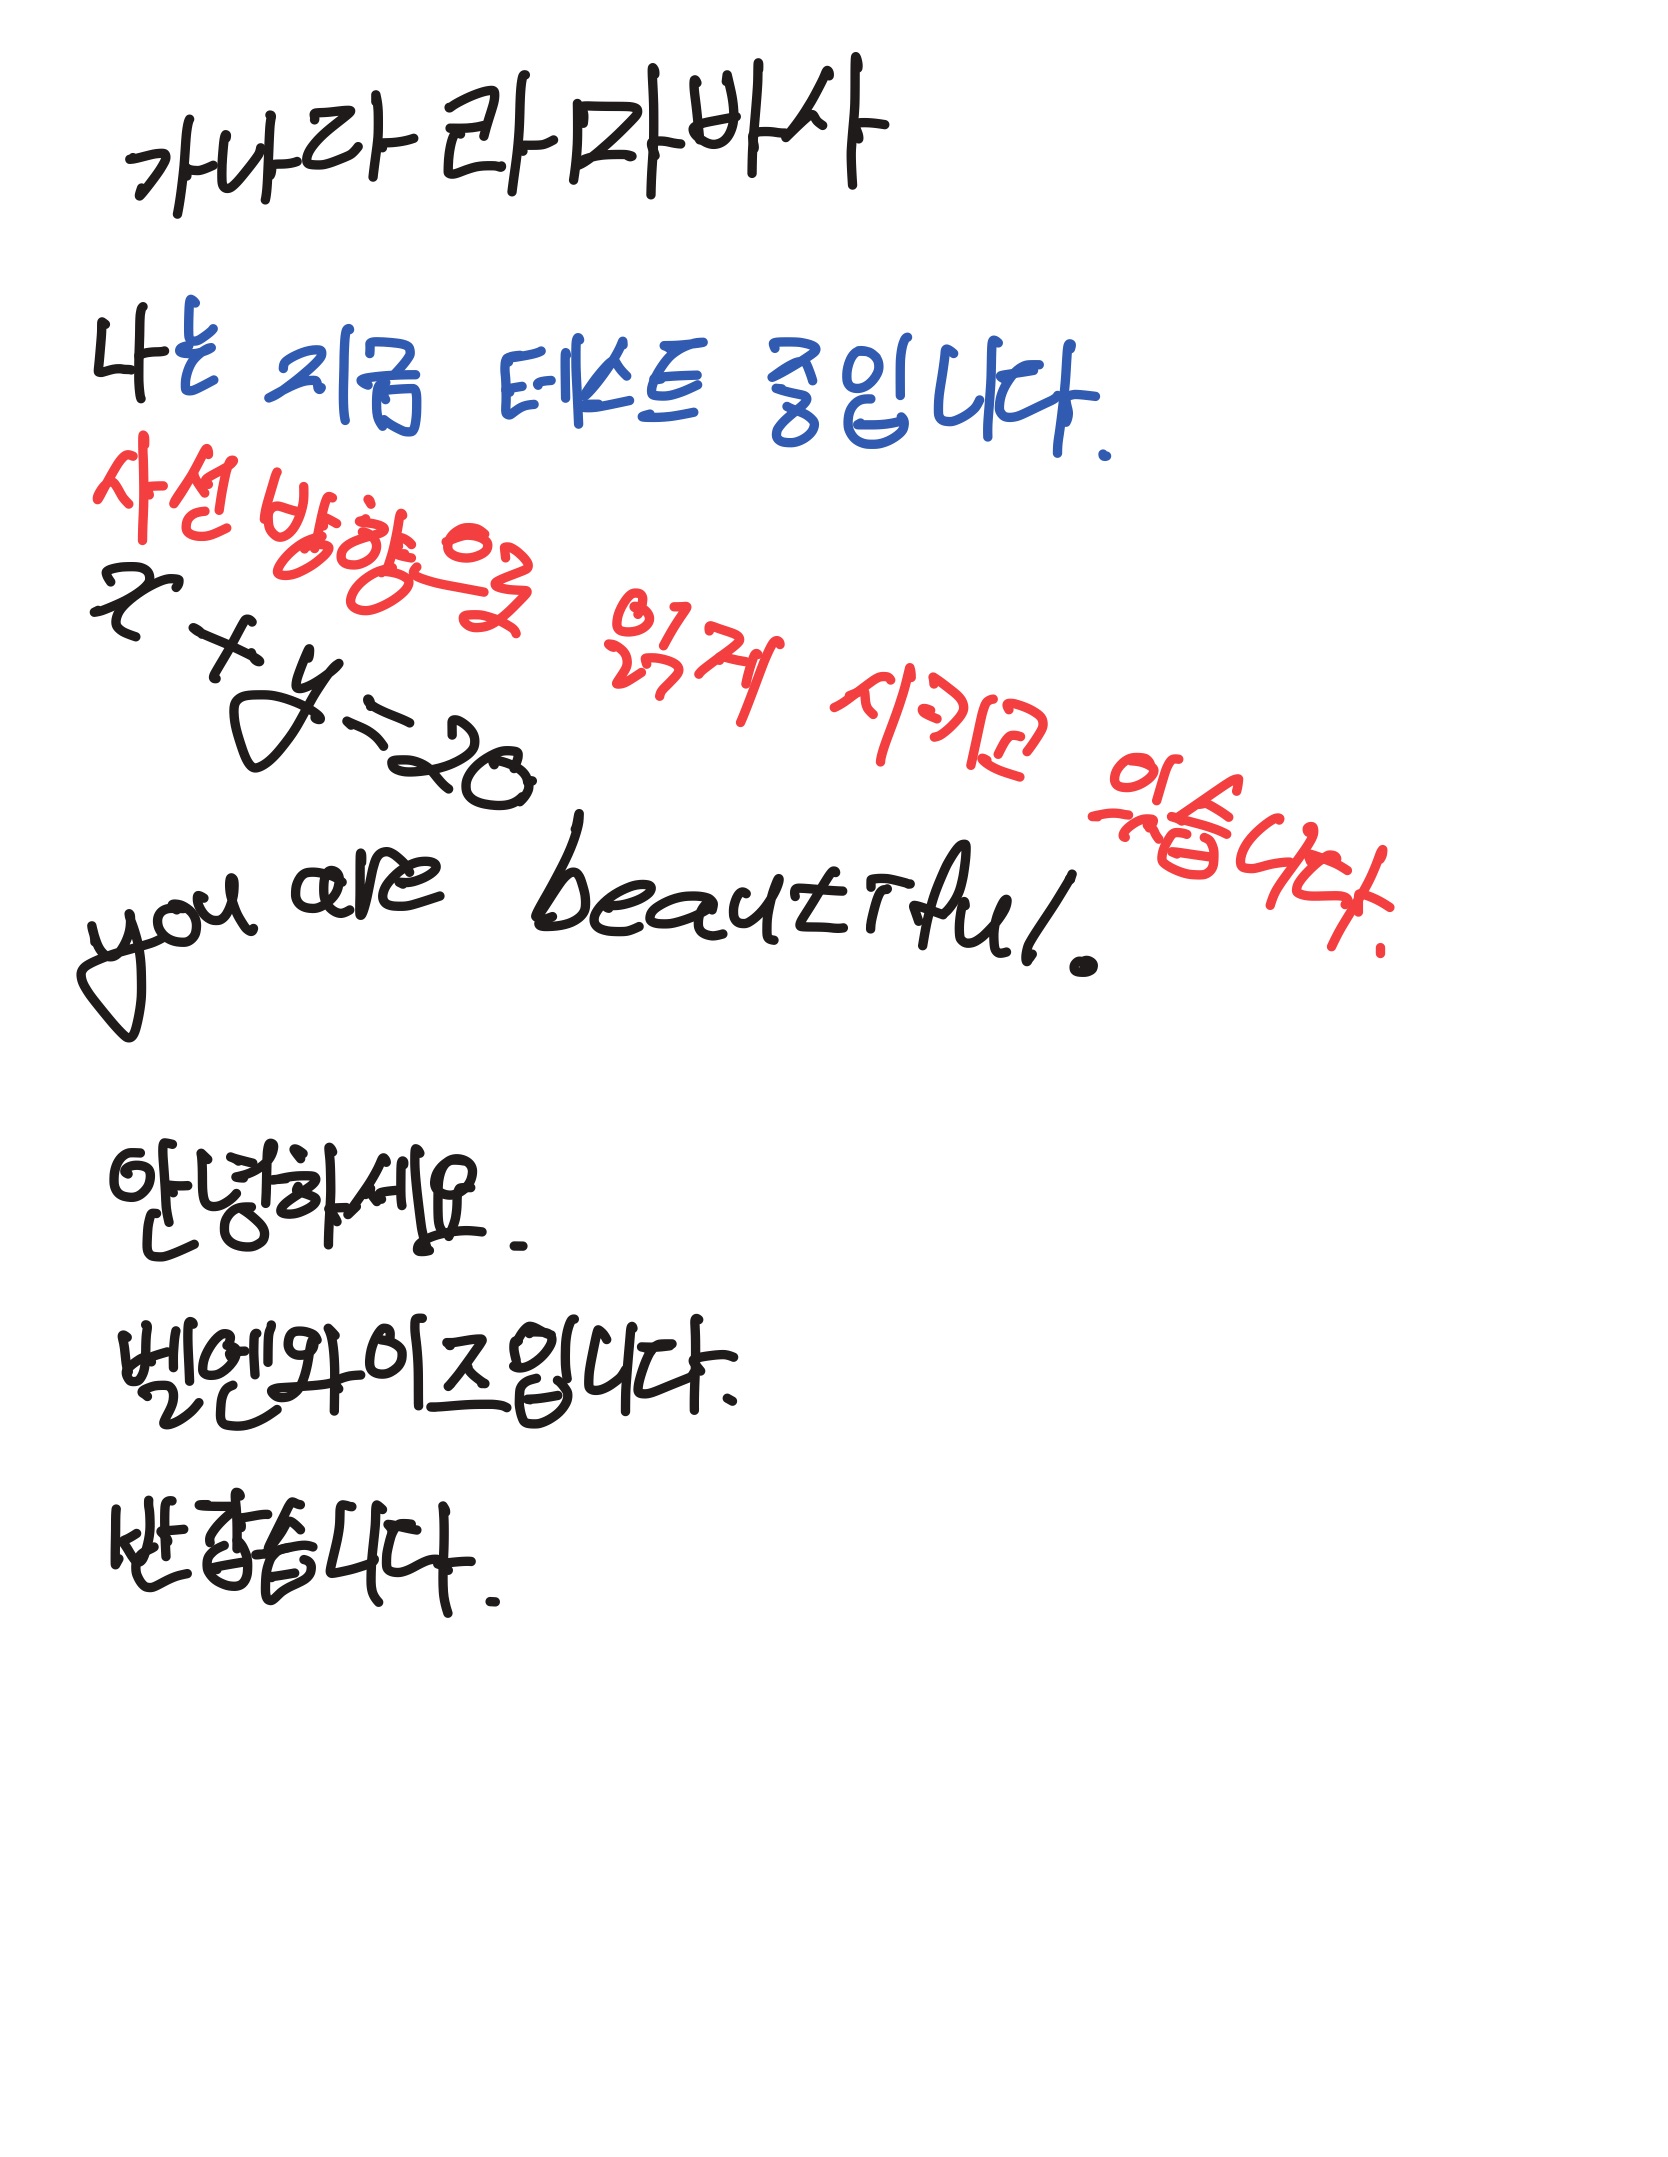 가나다라마바사
나는 지금 테스트 중입니다.
사선 방향으로 읽게 시키고 있습니다.
x + y = 20
you are beautiful.
안녕하세요.
벨엔와이즈입니다.
반갑습니다.